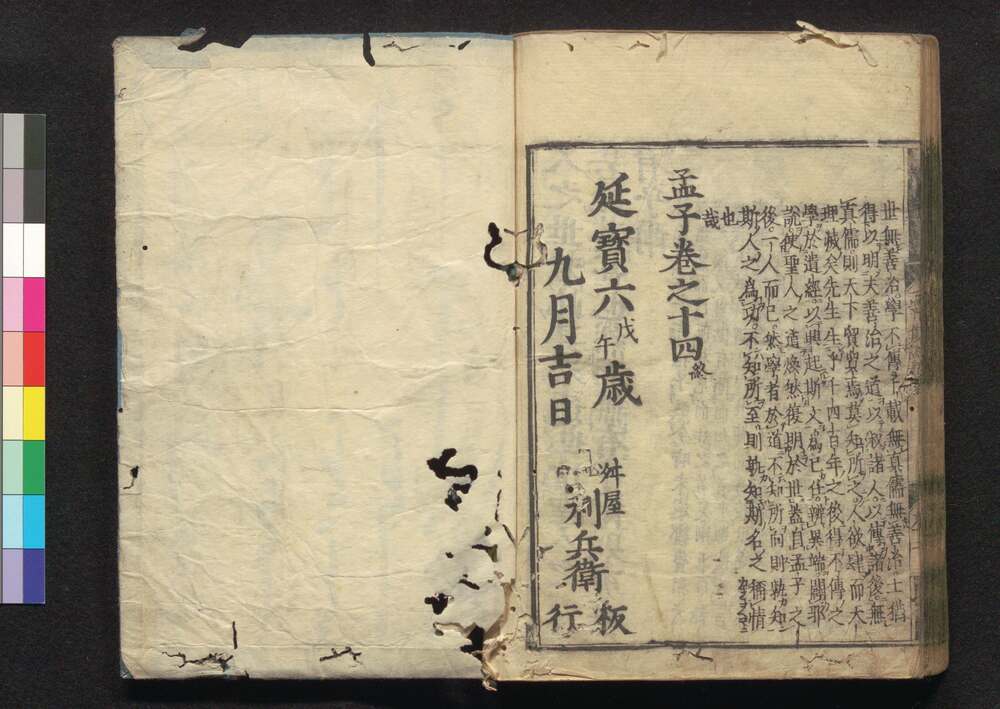 世無善治學不傳千載無真儒無善治士猶
得以明夫善治之道以淑諸人以傳諸後無
真儒則天下貿貿焉莫知所之人欲肆而天
理滅矣先生生乎千四百年之後得不傳之
學於遺經以興起斯文爲已任辨異端闢邪
說使聖人之道煥然復明於世蓋自孟子之
後一人而已然學者於道不知所向則孰知
斯人之爲功不知所至則孰知斯名之稱情
也哉
孟子卷之十四終
延寶六戊午歳
九月吉日
舛屋
利兵衛
板
行